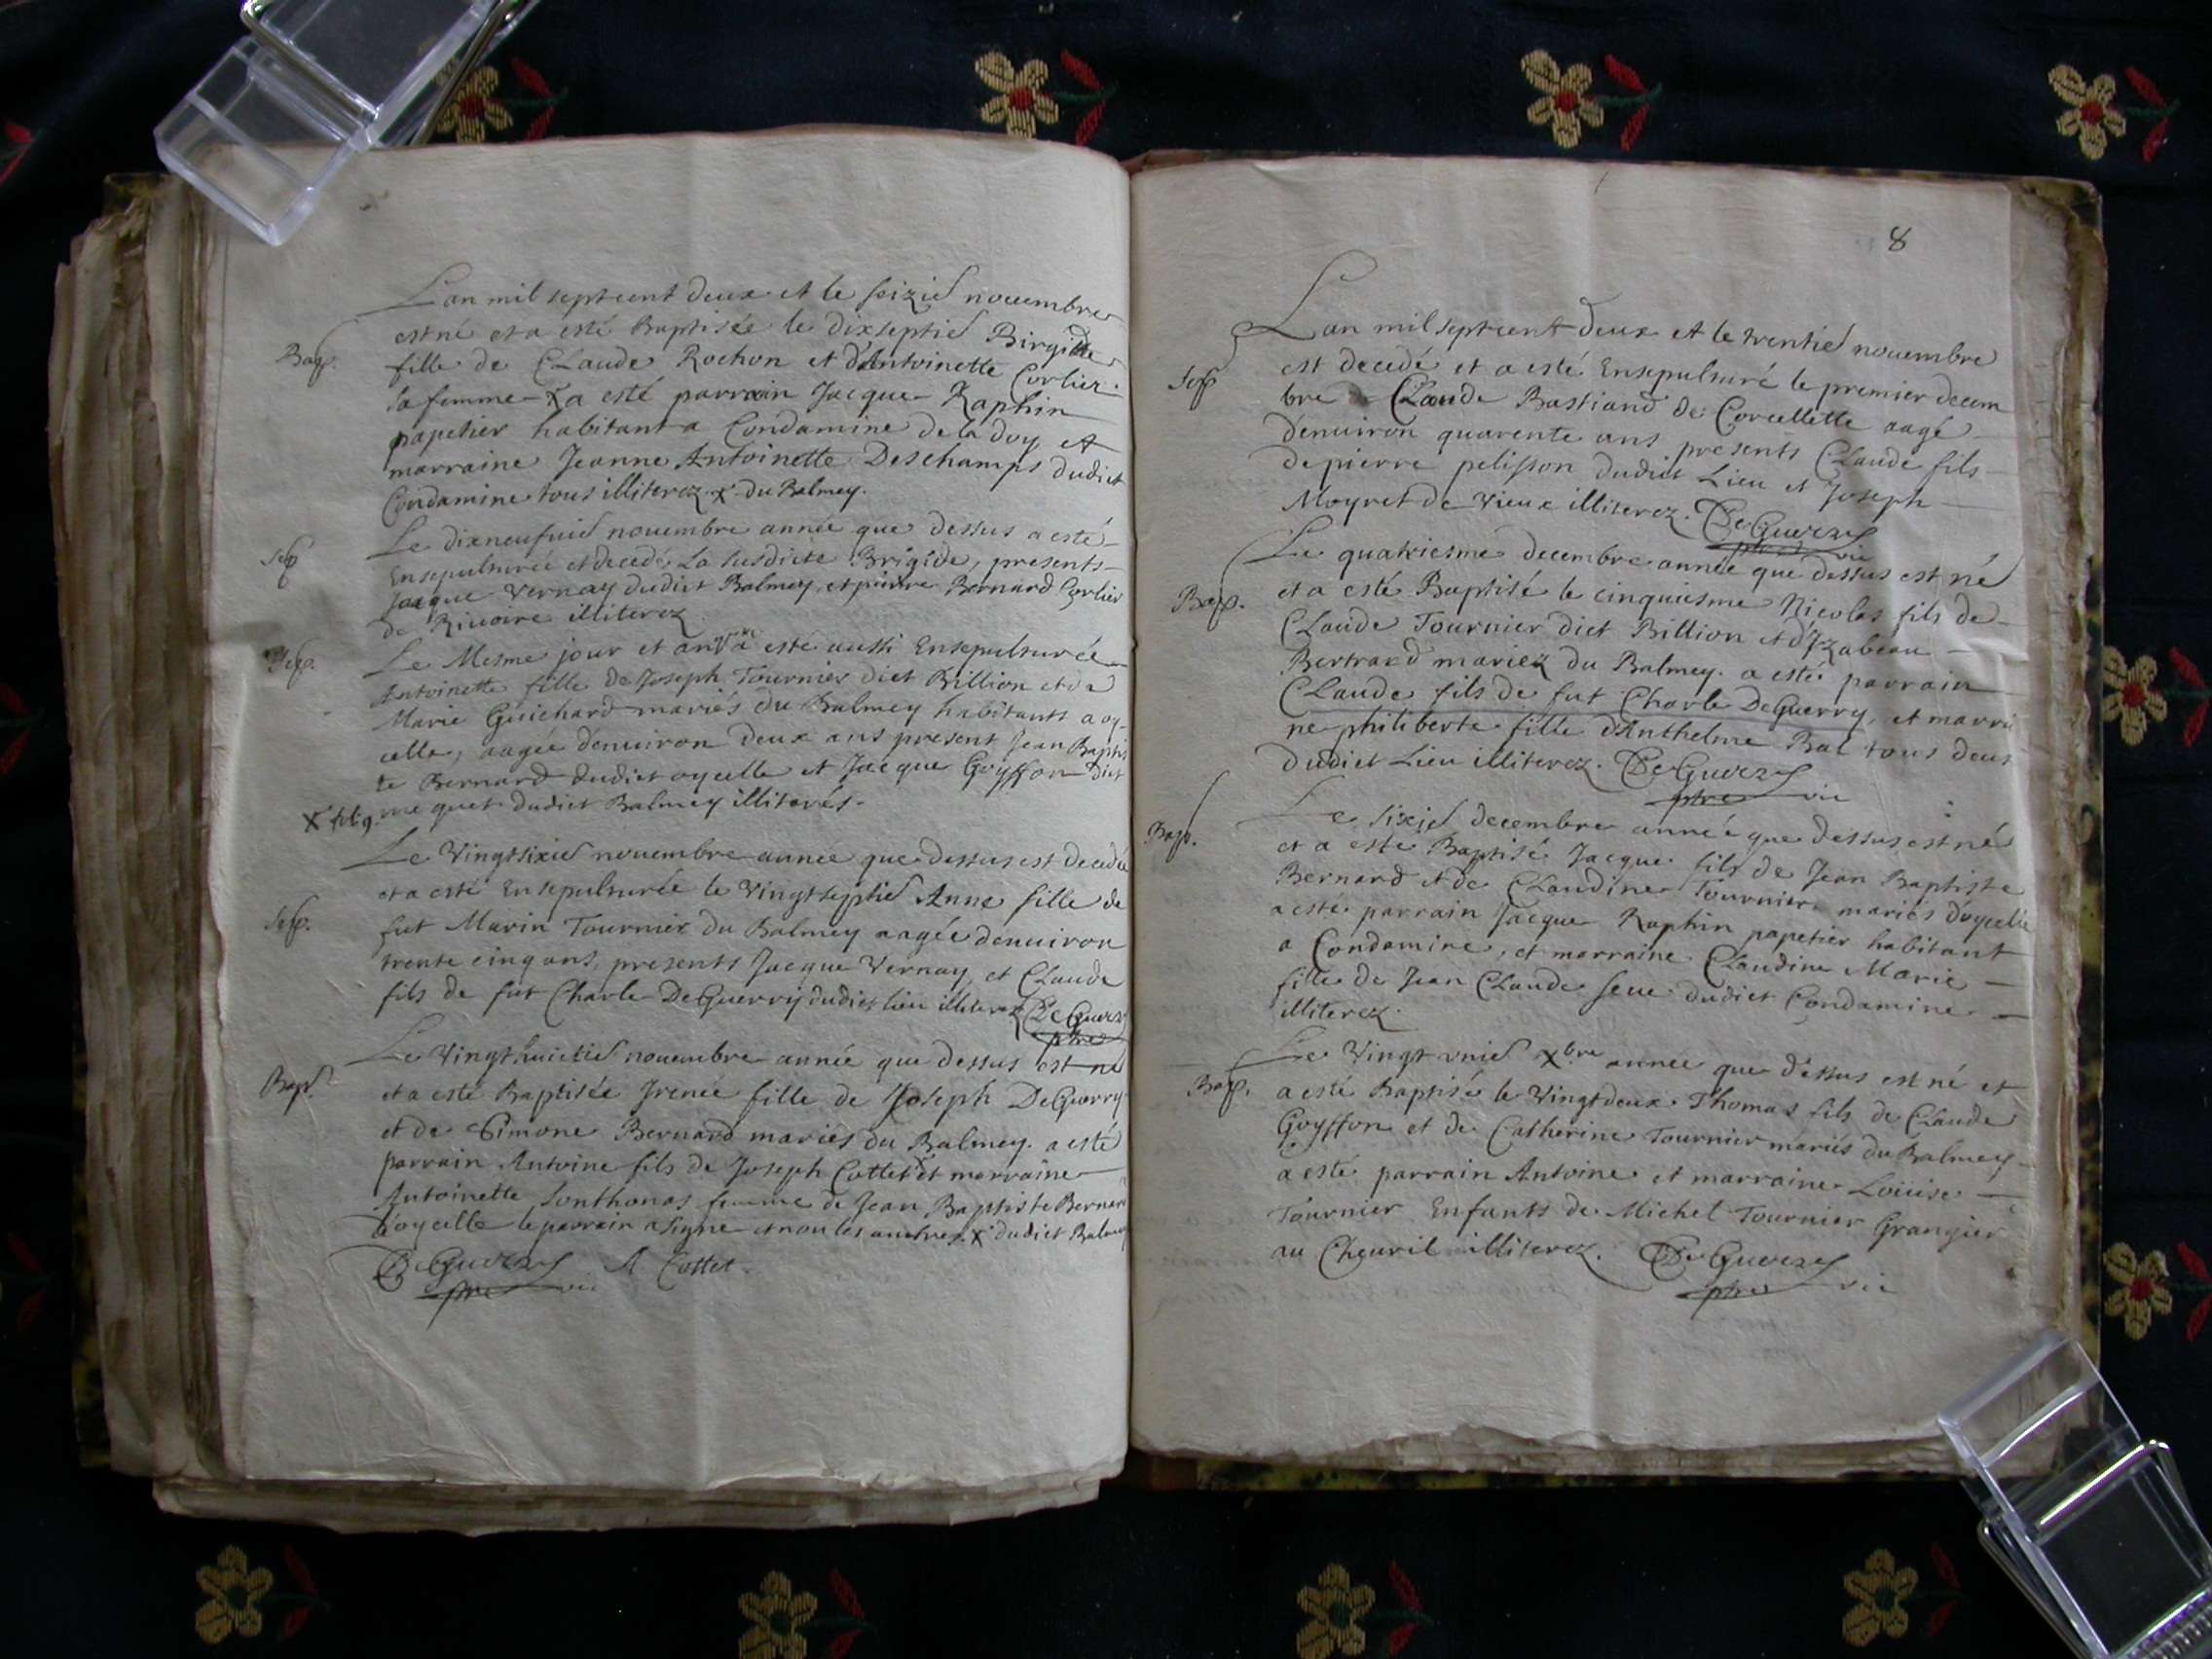 L'an mil septcent deux et le seizie nouembre
Bap.
est né et a esté Baptisée le dixseptie Birgide
fille de CLaude Rochon et d'Antoinette Corlier.
sa femme x a esté parrain Jacque Raphin
papetier habitant a Condamine de la doy et
marraine Jeanne Antoinette Deschamps dudict
Condamine tous illiterez. x du Balmey.
Le dixneufuie nouembre année que dessus a esté
Sep
Ensepulturée et decedé La susdicte Brigide, presents
Jacque Vernay dudict Balmey, et pierre Bernard Corlier
de Riuoire illiterez
Sep.
Le Mesme jour et an a esté aussi Ensepulturée
Antoinette fille de Joseph Tournier dict Billion et de
Marie Guichard mariés du Balmey habitants a oy-
celle, aagée denuiron deux ans present Jean Baptis
te Bernard dudict oycelle et Jacque Goyffon dict
x me quet dudict Balmey illiterés.
Le Vingtsixie nouembre année que dessus est decedée
et a esté Ensepulturée le Vingtseptie Anne fille de
Sep.
fut Marin Tournier du Balmey aagée denuiron
trente cinq ans, presents Jacque Vernay, et CLaude
fils de fut Charle DeGuerry dudict lieu illiterez DeGuerry
ptre
Le Vingthuictie nouembre année que dessus est né
Bap.
et a esté Baptisée Irenée fille de Joseph DeGuerry
et de Simone Bernard mariés du Balmey. a esté
parrain Antoine fils de Joseph Cottet x et marraine
Antoinette Sonthonas femme de Jean Baptiste Bernard
d'oycelle le parrain a signe et non les autres. x dudict Balmey
DeGuerry A Cottet.
ptre vic
8
L'an mil septcent deux et le trentie nouembre
Sep
est decedé et a esté Ensepulturé le premier decem
bre CLaude Bastiand de Corcellette aagé
d'enuiron quarente ans presents CLaude fils
de pierre pelisson dudict Lieu et Joseph
Moyret de Vieux illiterez. DeGuerry
ptre vic
Le quatriesme decembre année que dessus est né
Bap.
et a esté Baptisé le cinquiesme Nicolas fils de
CLaude Tournier dict Billion et d'Yzabeau
Bertrand mariez du Balmey. a esté parrain
CLaude fils de fut Charle DeGuerry, et marrai
ne philiberte fille d'Anthelme Bal tous deux
dudict Lieu illiterez. DeGuerry
ptre vic
Le sixie decembre année que dessus est né
Bap.
et a esté Baptisé Jacque fils de Jean Baptiste
Bernard et de CLaudine Tournier mariés d'oycelle
a esté parrain Jacque Raphin papetier habitant
a Condamine, et marraine CLaudine Marie
fille de Jean CLaude seue dudict Condamine
illiterez.
Le Vingt vnie xbre année que dessus est né et
Bap.
a esté Baptisé le Vingtdeux Thomas fils de CLaude
Goyffon et de Catherine Tournier mariés du Balmey
a esté parrain Antoine et marraine Loüise
Tournier Enfants de Michel Tournier Grangier
au Cheuril illiterez. DeGuerry
ptre vic